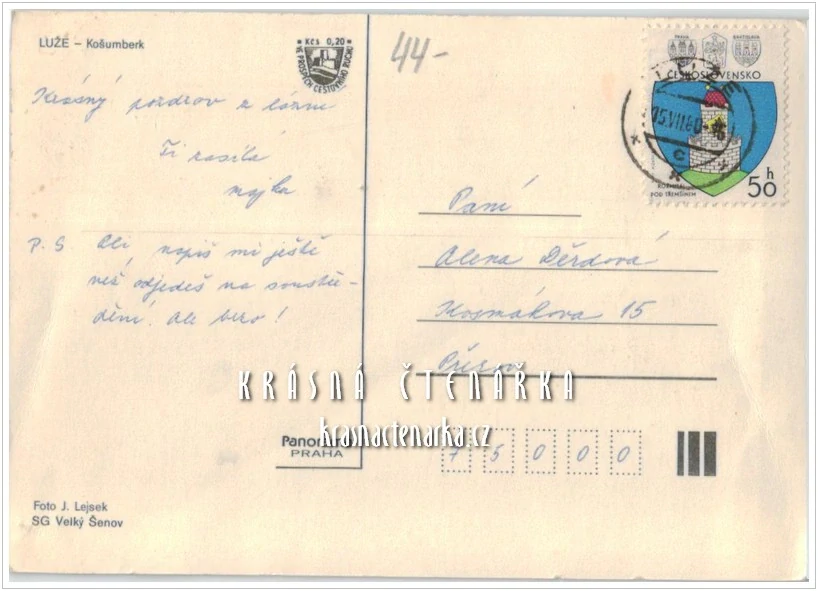 LUŽE – Košumberk
Kčs 0,20
VE PROSPĚCH CESTOVNÍHO RUCHU
44-
PRAHA
BRATISLAVA
ČESKOSLOVENSKO
15.VII.80
c
ROŽMITÁL
POD TŘEMŠÍNEM
50 h
Krásný pozdrav z lázní
Ti posílá
majka
P. S. Ali, napiš mi ještě
než odjedeš na soustře-
dění. Ale bezo!
Paní
Alena Děrdová
Kosmákova 15
Přerov
KRÁSNÁ ČTENÁŘKA
krasnactenarka.cz
Panorama
PRAHA
75000
Foto J. Lejsek
SG Velký Šenov